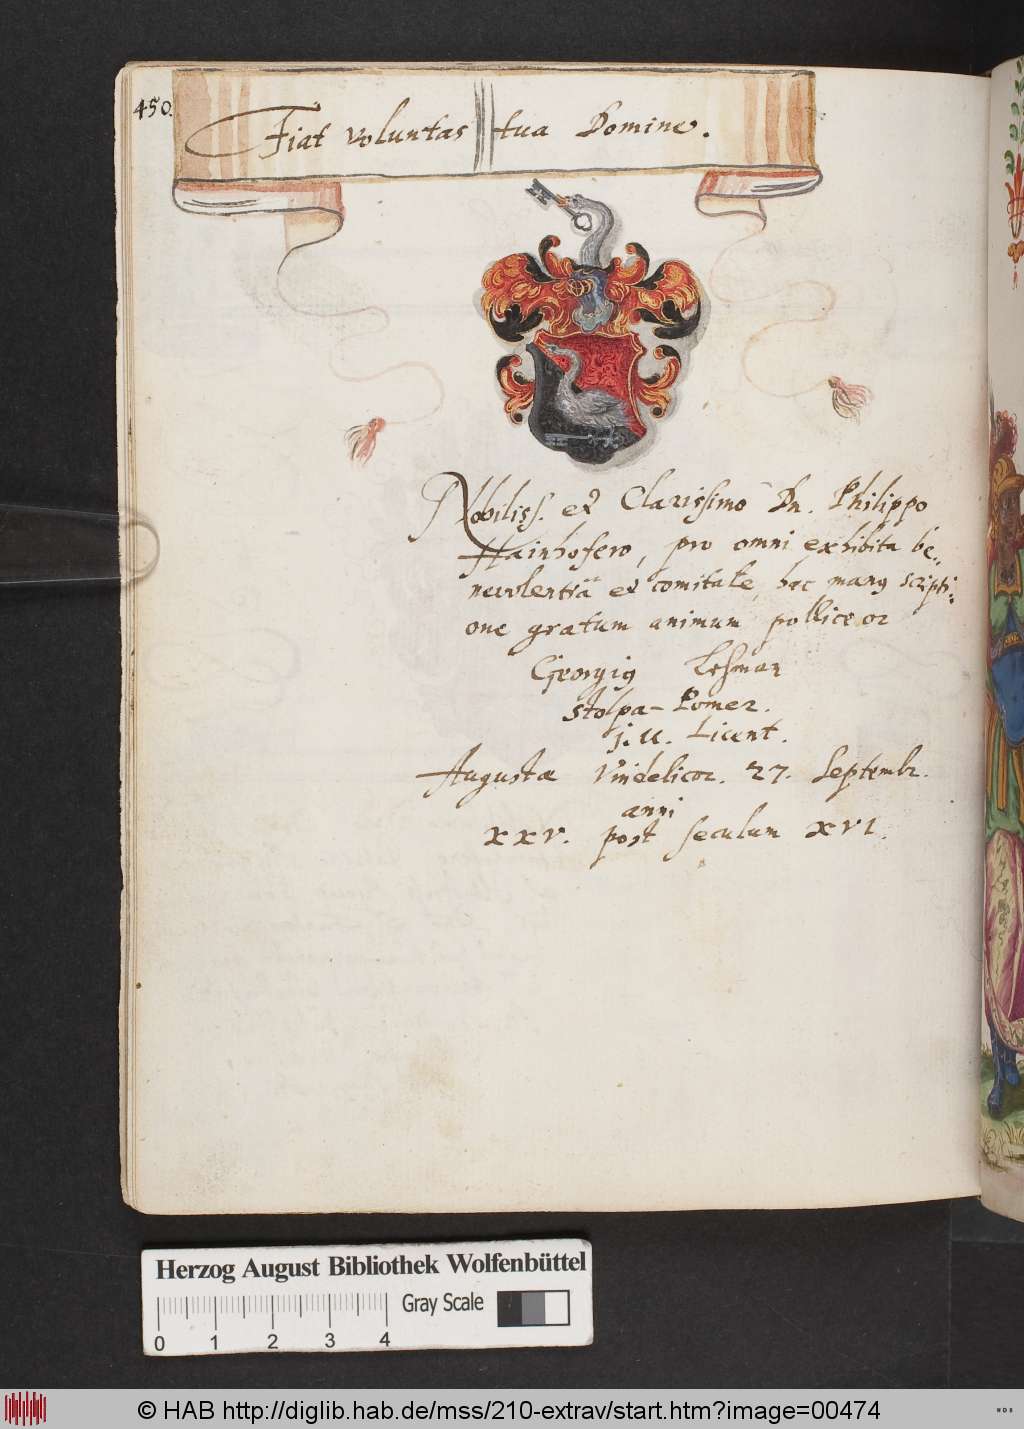 450.
Fiat voluntas tua Domine.
Nobiliss. et Clarissimo Dn. Philippo
Hainhofero, pro omni exhibita be„
nevolentiâ et comitate, hac manus scripti„
one gratum animum polliceor
Georgius Lesman
Stolpa-Pomer.
J. U. Licent.
Augustae Vindelicor. 27. Septembr.
anni
XXV. post seculum XVI.
Herzog August Bibliothek Wolfenbüttel
Gray Scale
0 1 2 3 4
© HAB http://diglib.hab.de/mss/210-extrav/start.htm?image=00474